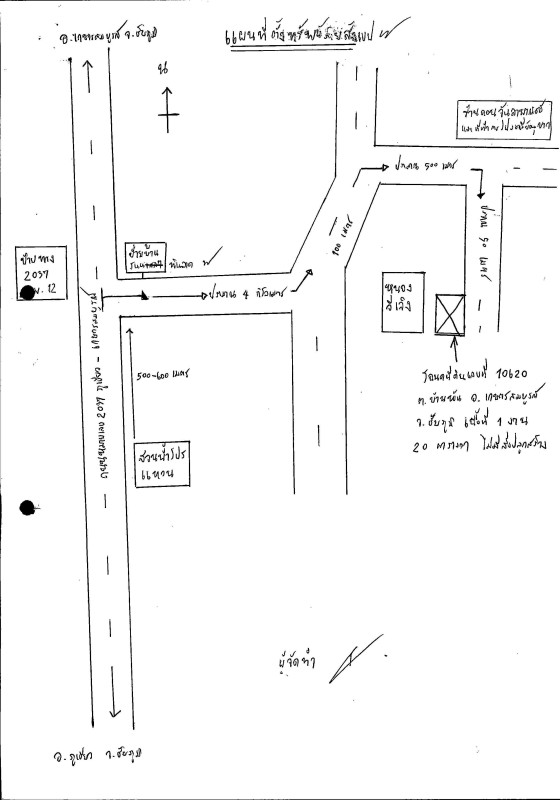 อ.เกษตรสมบูรณ์ จ.ชัยภูมิ
แผนที่ตั้งทรัพย์โดยสังเขป
น
ประมาณ 500 เมตร
ประมาณ 50 เมตร
100 เมตร
ป้ายทาง
2037
กม. 12
ป้ายบ้าน
ประมาณ 4 กิโลเมตร
ทางหลวงหมายเลข 2037 ภูเขียว - เกษตรสมบูรณ์
500-600 เมตร
สวนป่าโปร
แหวน
หนอง
อีเจิง
โฉนดที่ดินเลขที่ 10620
ต. บ้านหัน อ. เกษตรสมบูรณ์
จ. ชัยภูมิ เนื้อที่ 1 งาน
20 ตารางวา ไม่มีสิ่งปลูกสร้าง
ผู้จัดทำ
อ. ภูเขียว จ. ชัยภูมิ